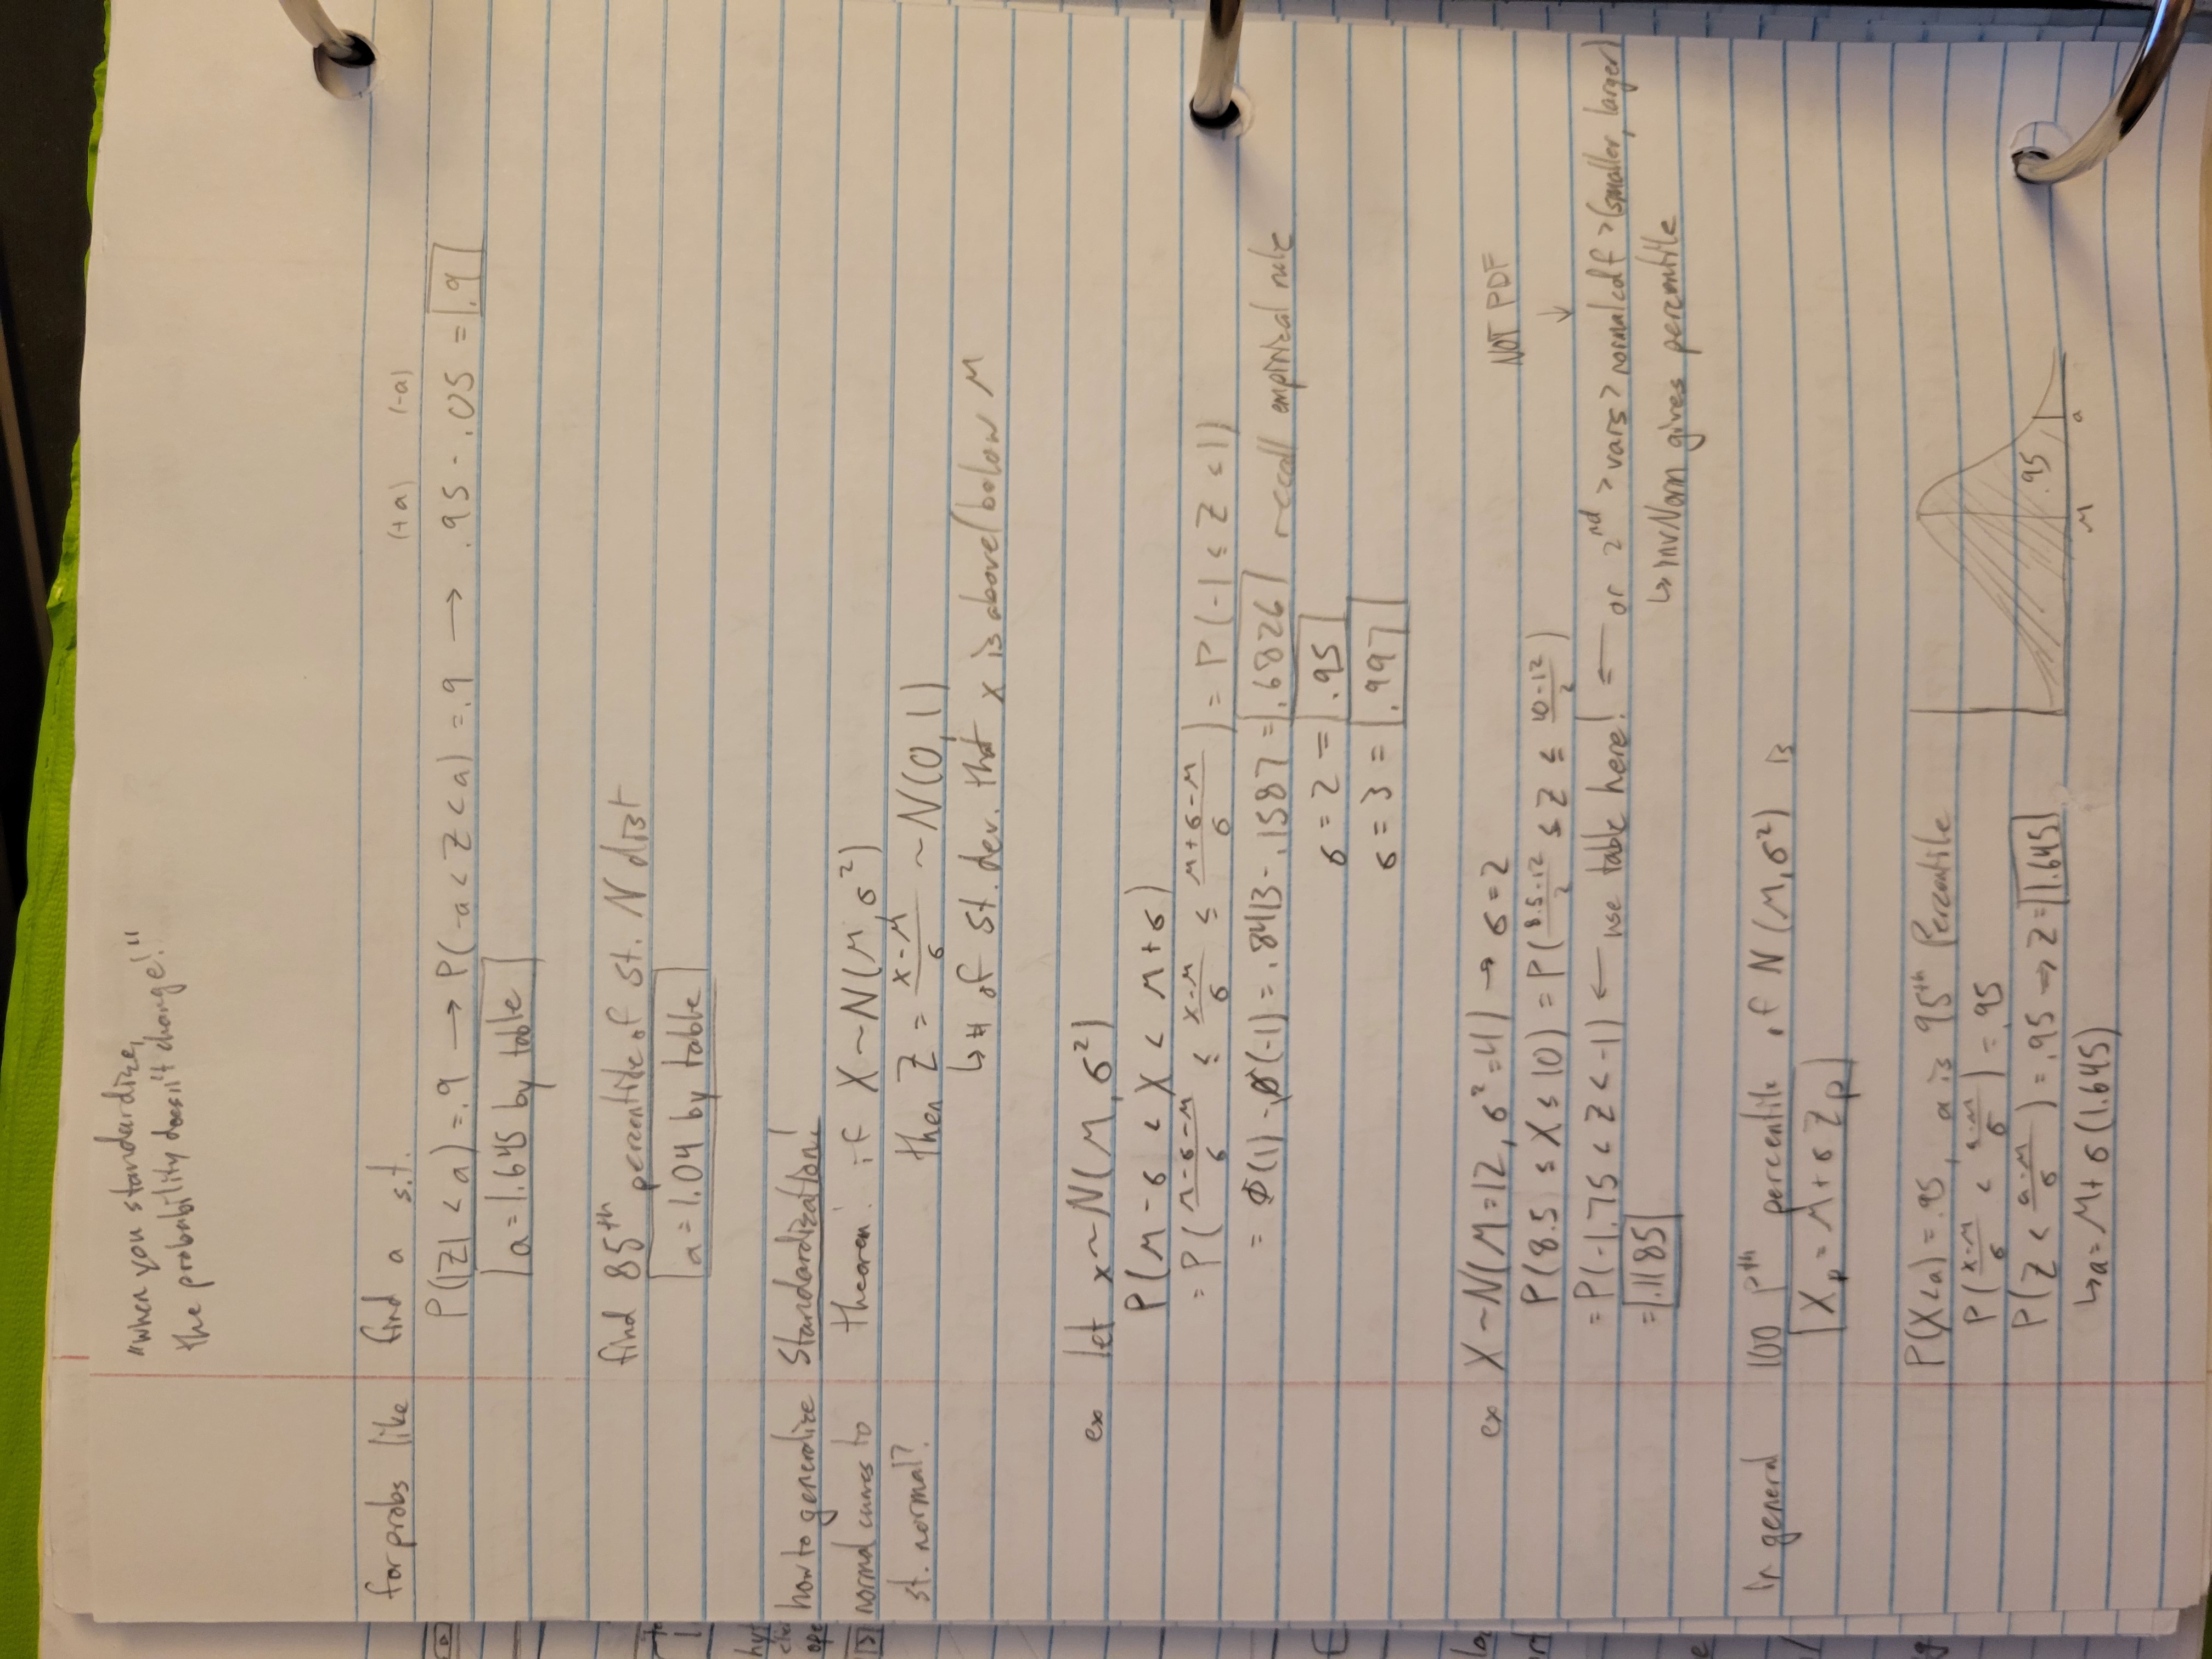 "when you standardize,
the probability doesn't change!"
for probs like find a s.t.
(+a) (-a)
P(|Z| < a) = .9 → P(-a < Z < a) = .9 → .95 - .05 = .9
a = 1.645 by table
find 85th percentile of st. N dist
a = 1.04 by table
how to generalize Standardization!
normal curves to theorem: if X ~ N(μ, σ²)
st. normal? then Z = (x-μ)/σ ~ N(0, 1)
↳ # of st. dev. that x is above/below μ
ex let x ~ N(μ, σ²)
P(μ-σ < X < μ+σ)
= P((μ-σ-μ)/σ ≤ (x-μ)/σ ≤ (μ+σ-μ)/σ) = P(-1 ≤ Z ≤ 1)
= Φ(1) - Φ(-1) = .8413 - .1587 = .6826 recall empirical rule
σ = 2 = .95
σ = 3 = .997
ex X ~ N(μ=12, σ²=4) → σ=2
NOT PDF
↓
P(8.5 ≤ X ≤ 10) = P((8.5-12)/2 ≤ Z ≤ (10-12)/2)
= P(-1.75 < Z < -1) ← use table here! ← or 2nd > vars > normalcdf > (smaller, larger)
= .1185
↳ invNorm gives percentile
in general 100 pth percentile of N(μ, σ²) is
Xp = μ + σ Zp
P(X<a) = .95, a is 95th Percentile
P((x-μ)/σ < (a-μ)/σ) = .95
P(Z < (a-μ)/σ) = .95 → Z = 1.645
↳ a = μ + σ(1.645)
.95
μ a